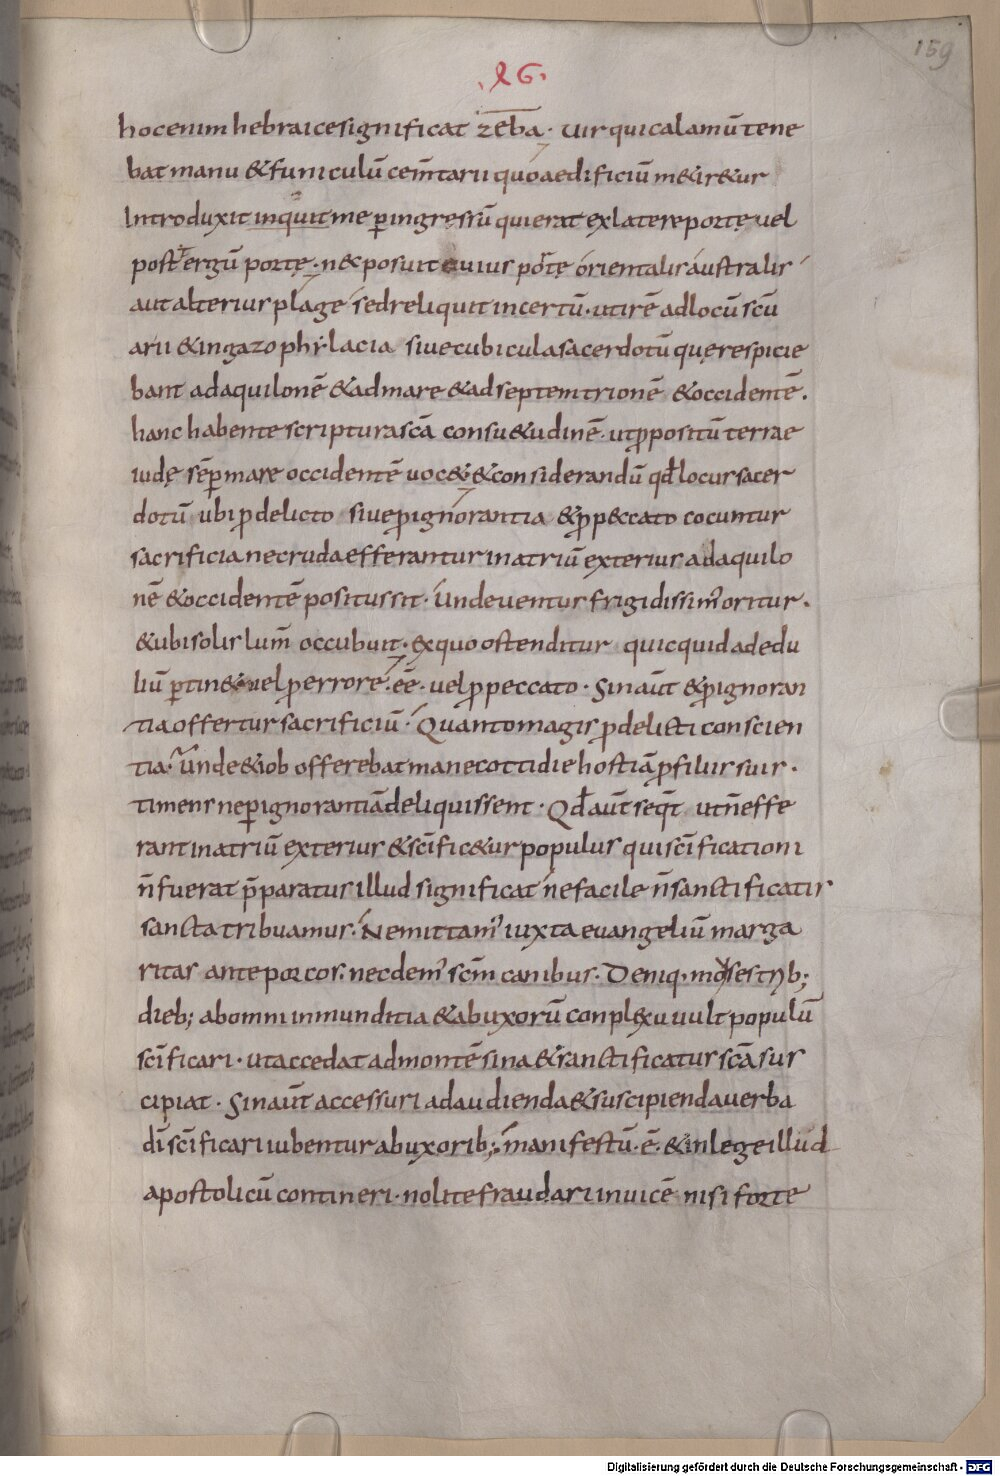 159
.XG.
hoc enim hebraice significat zeba. uir qui calamū tene
bat manu & funiculū cem̄tarii quo aedificiū m&ir&ur
Introduxit inquit me p̲ ingressū qui erat ex latere portę uel
post tergū portę. n& posuit cuius portę orientalis australis
aut alterius plage sed reliquit incertū. ut irē ad locū scūarii
& in gazophylacia siue cubicula sacerdotū quę respicie
bant ad aquilonē & ad mare & ad septemtrionē & occidentē.
hanc habente scriptura scā consu&udinē. ut p̲positū terrae
iudę sēp̲ mare occidentē uoc&. & considerandū qđ locus sacer
dotū ubi p̲ delicto siue p̲ ignorantia & p̲ peccato cocuntur
sacrificia ne cruda efferantur in atriū exterius ad aquilo
nē & occidentē positus sit. Unde uentus frigidissim' oritur.
& ubi solis lum̄ occubuit. ex quo ostenditur quicquid ad edu
liū p̲tin& uel p̲ errore. eē. uel p̲ peccato. Sin aūt & p̲ ignoran
tia offertur sacrificiū. Quanto magis p̲ delicti conscien
tia. Unde & iob offerebat mane cottidie hostiā p̲ filiis suis.
timens ne p̲ ignorantiā deliquissent. Qđ aūt seq̄t ut n̄ effe
rant in atriū exterius & scīfic&ur populus qui scīficationi
n̄ fuerat p̄paratus illud significat ne facile n̄ sanctificatis
sancta tribuamus. Ne mittam' iuxta euangeliū marga
ritas ante porcos. nec dem' scm̄ canibus. Deniq; moyses trib;
dieb; ab omni inmunditia & ab uxorū conplexu uult populū
scīficari. ut accedat ad montē sina & sanctificatus scā sus
cipiat. Sin aūt accessuri ad audienda & suscipienda uerba
dī scīficari iubentur ab uxorib; manifestū. ē. & in lege illud
apostolicū contineri. nolite fraudari inuicē nisi forte
Digitalisierung gefördert durch die Deutsche Forschungsgemeinschaft - DFG